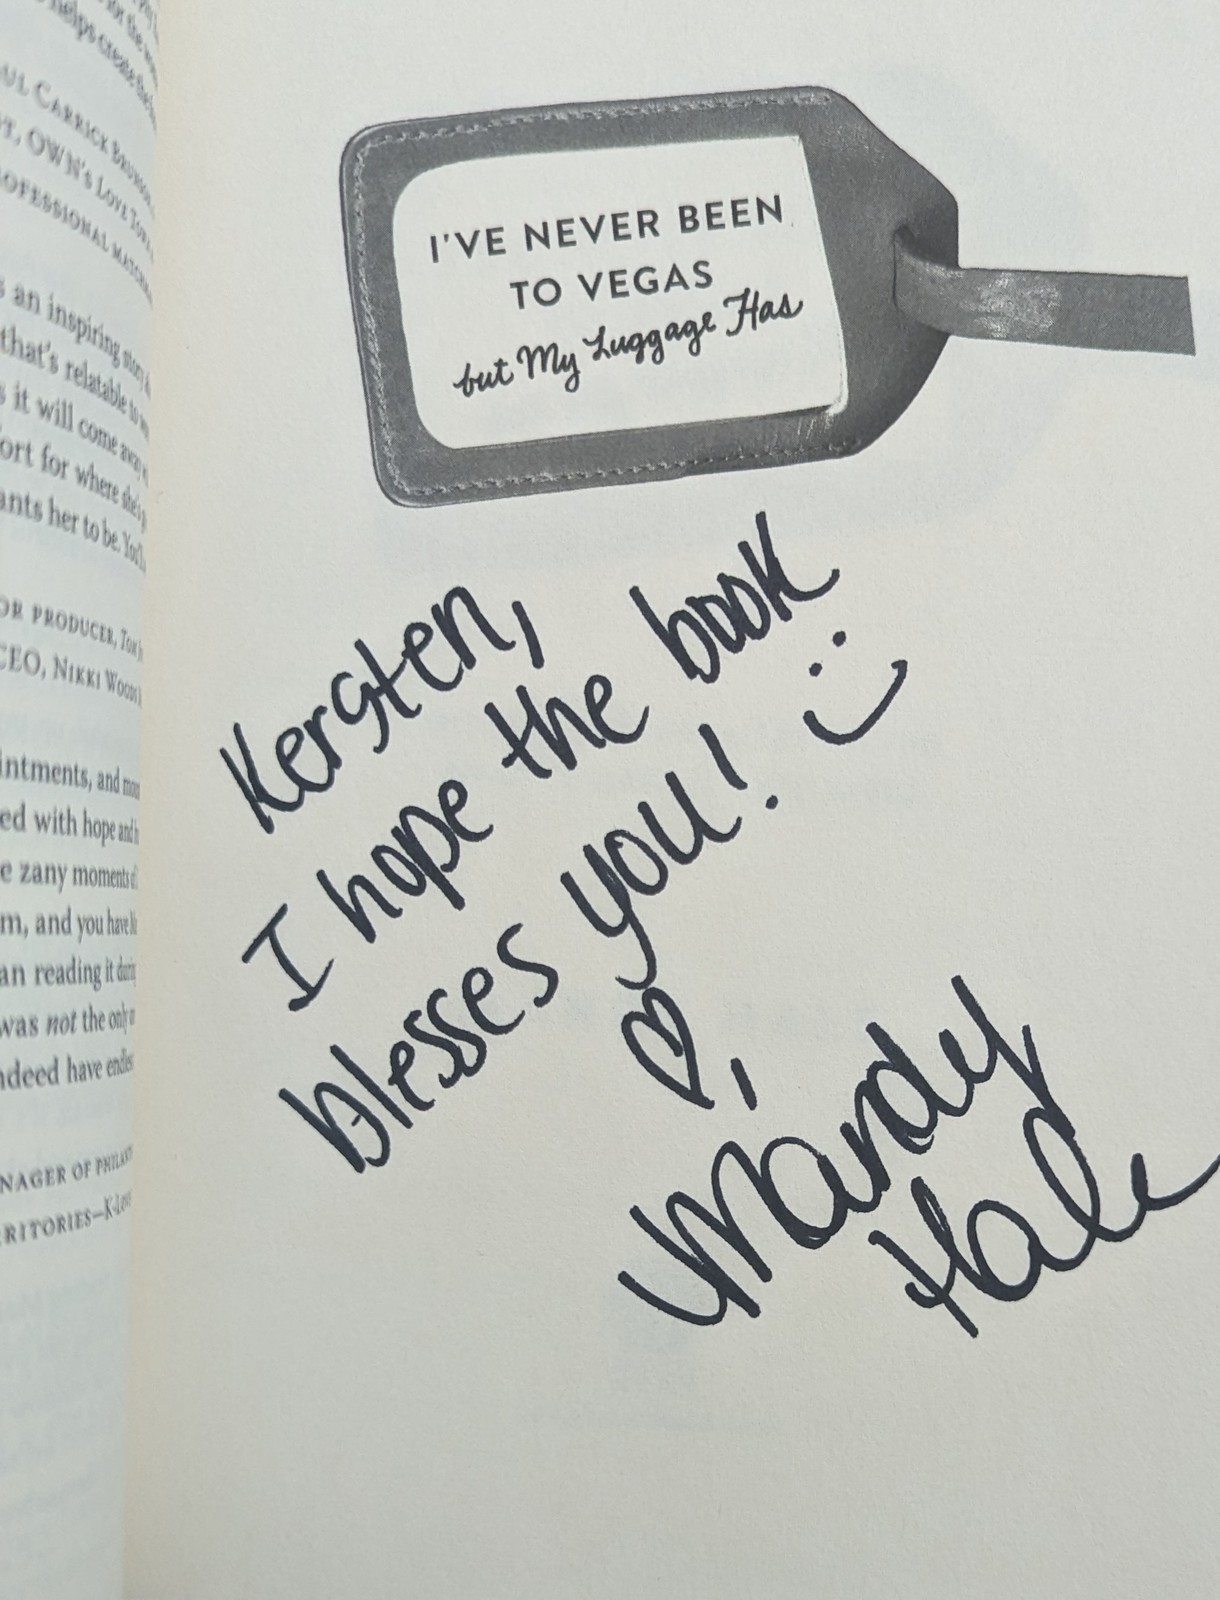 helps create the
UL CARRICK BRUNSON
T, OWN'S LOVE TOWN
OFESSIONAL MATCHMA
s an inspiring story
that's relatable to
s it will come away
ort for where she's
ants her to be. You'll
OR PRODUCER, TOM
CEO, NIKKI WOODS
intments, and
ed with hope and
e zany moments
m, and you have
an reading it during
was not the only
ndeed have endless
NAGER OF PHILANT
RRITORIES—K-LOVE
I'VE NEVER BEEN
TO VEGAS
but My Luggage Has
Kersten,
I hope the book
blesses you! :)
♡,
Mandy
Hale